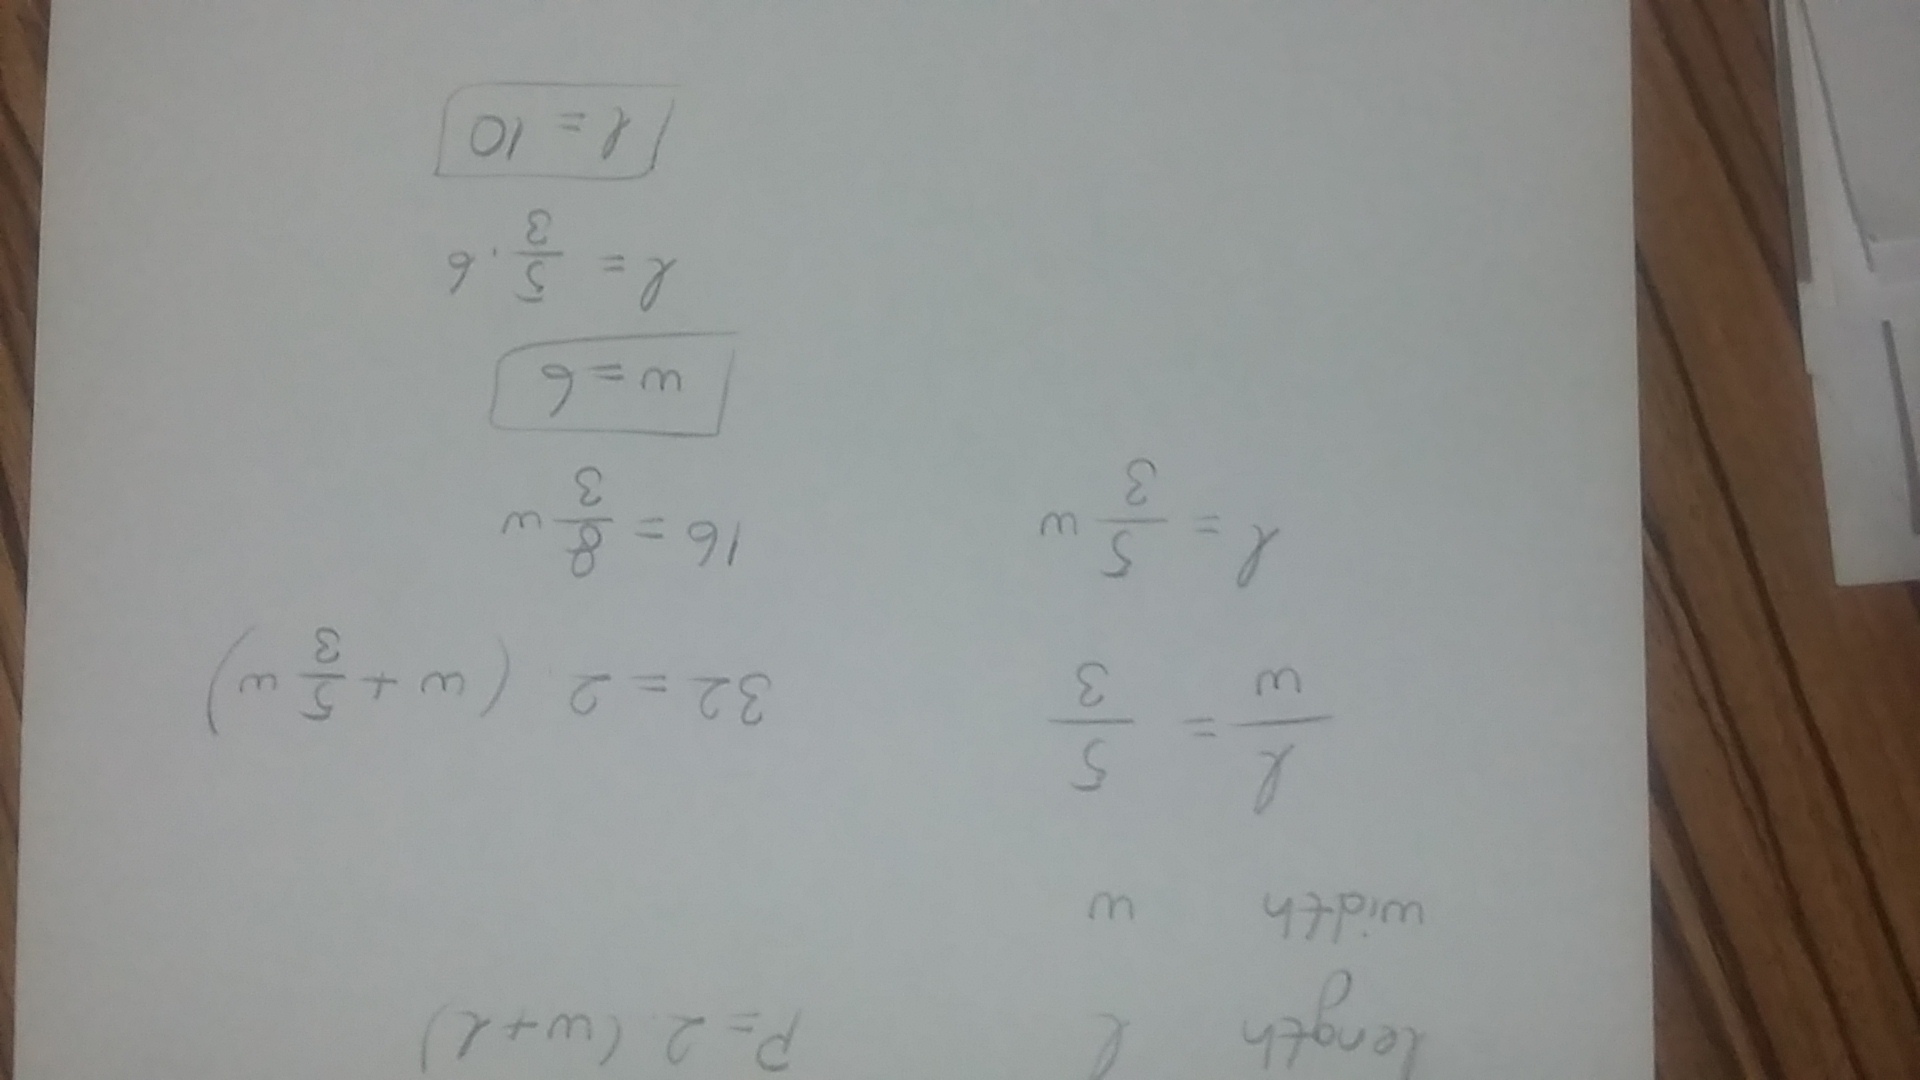 length l
width w
l/w = 5/3
l = 5/3 w
P = 2 (w + l)
32 = 2 (w + 5/3 w)
16 = 8/3 w
w = 6
l = 5/3 · 6
l = 10